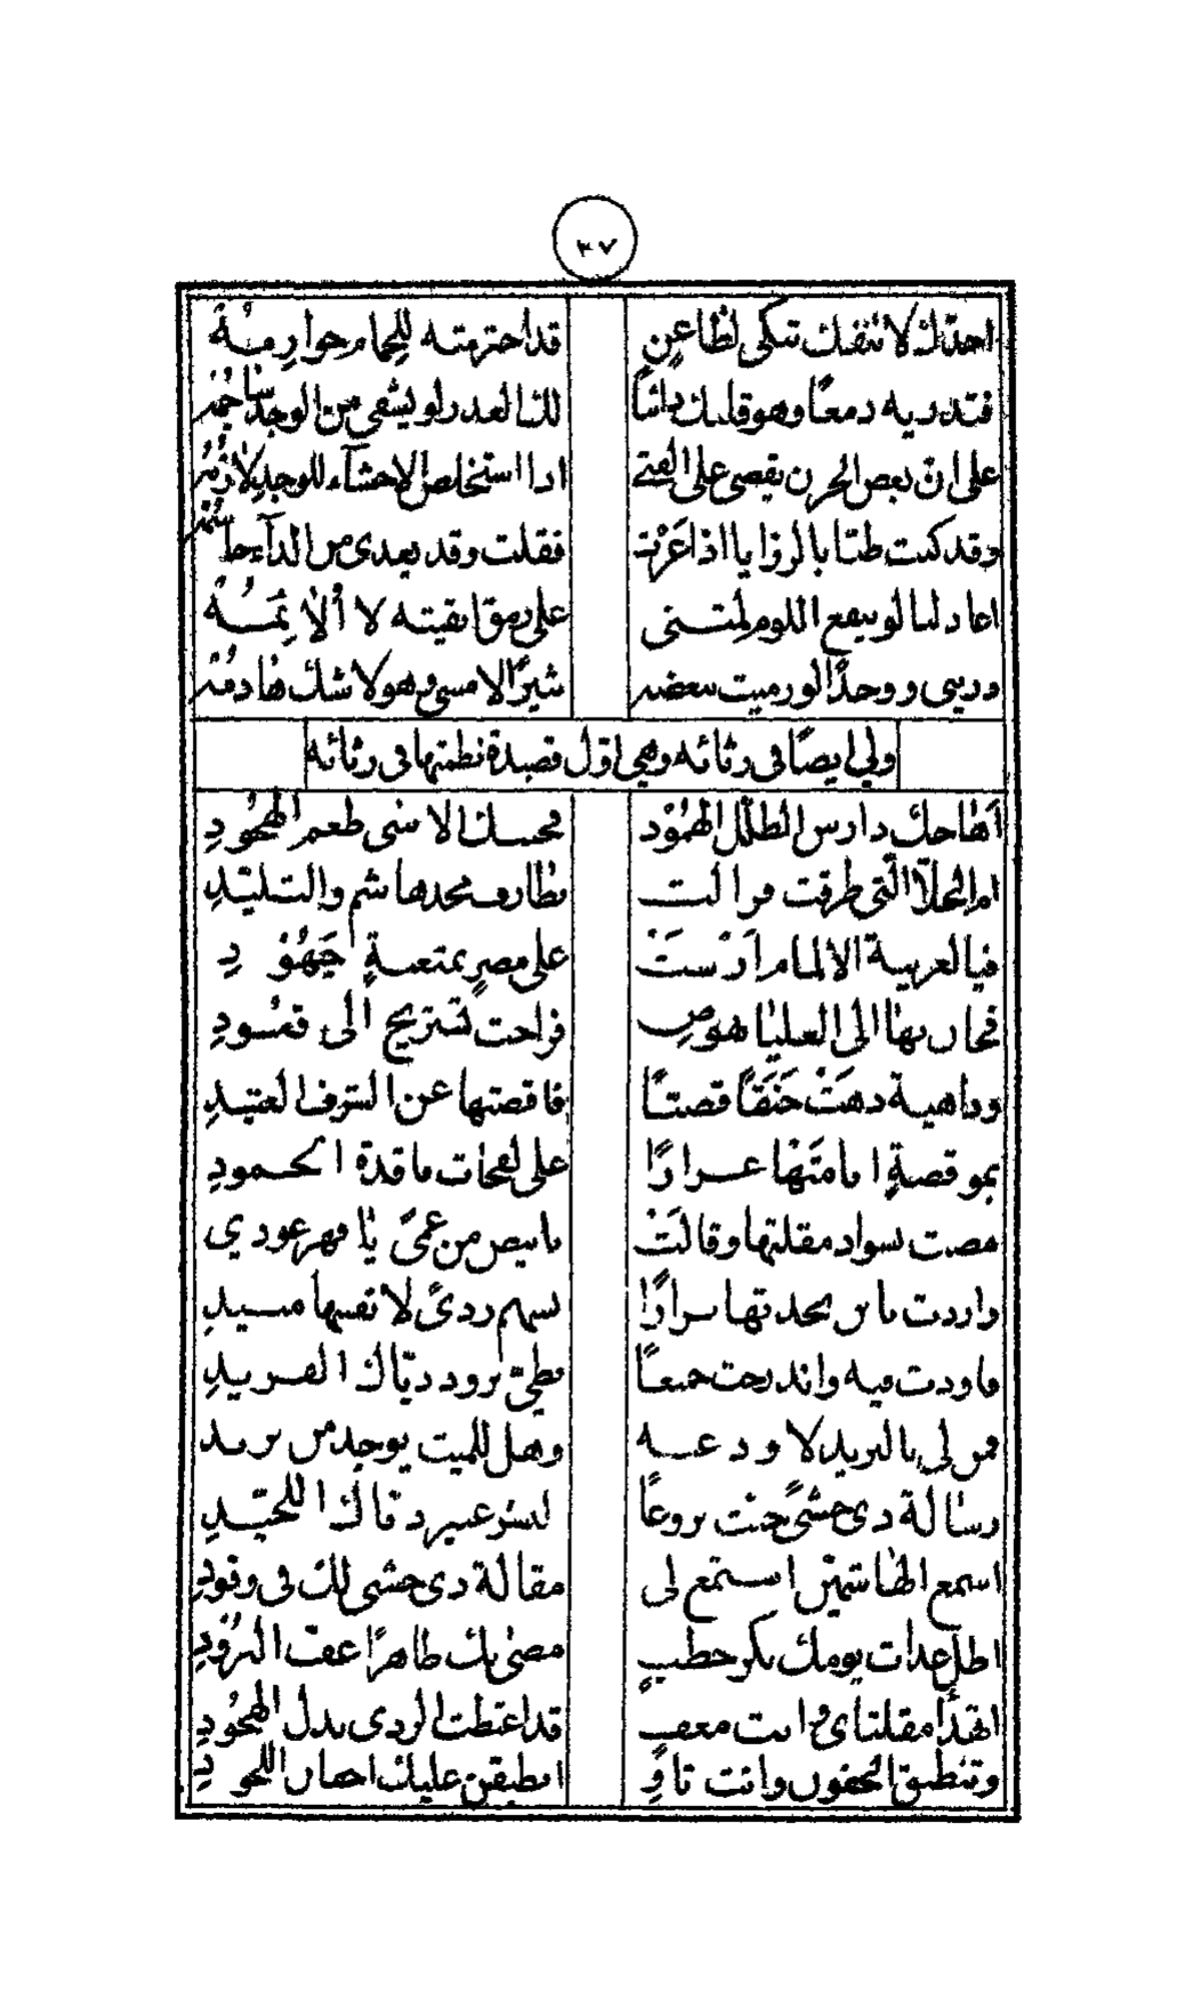 ٣٧
اجدّك لا تنفك تبكى لظاعنٍ قد احترمته للحمام حوارمُهُ
فتذريه دمعًا وهو قلبك دائبًا لك العذر لو يشفى من الوجد ساجمُهُ
على انّ بعض الحزن يقضى على الفتى اذا استخلص الاحشآء للوجد لازمُهُ
وقد كنت طبّا بالرزايا اذا عَرَتْ فقلت وقد يعدى من الدآء حاسمُهُ
اعاذلنا لو ينفع اللوم لمتنى على رمق ابقيته لا أُلائِمُهُ
ذرينى ووجدًا لو رميت ببعضه ثبيرًا لامسى وهو لا شك هادمُهُ
ولي ايضًا فى رثائه وهي اوّل قصيدة نظمتها فى رثائه
أهاجك دارس الطلل الهمُوْد فحسبك الاسى طعم الهجُودِ
ام الجلّا الّتى طرقت فرالت بطارف مجدها شم والتليّدِ
فيا لعريبة الالمام اَرْسَتْ على مصرٍ بمتعبةٍ جَهُوْدِ
فجار بها الى العليا هوصٍ فراحت تستريح الى قعُودِ
وداهية دهَتْ حَنَقًا قصيًّا فاقصتها عن الشرف العتيدِ
بموقصةٍ امامَتَها عرارًا على لفحات ماقدة الخمودِ
مضت بسواد مقلتها وقالَتْ بابيض من عمىً يا فهر عودي
واردت باس نجدتها سرارًا بسهم ردىً لانفسها مبيدِ
فاودت فيه واندرجت جميعًا بطيّ برود ذيّاك الفريدِ
فمن لى بالبريد لاودعه وهل للميت يوجد من بريد
رسالة ذى حشىً جنّت بروعًا ليسر عبيرد ذاك اللحيّدِ
اسمع الهاشميّين استمع لى مقالة ذى حشى لك فى وقودِ
اطلّ غداة يومك بكر خطبٍ مضى بك طاهرًا عفّ البُرُوْدِ
اتهدأ مقلتاى وانت مغفٍ قد اعتضت الردى بدل الهجُودِ
وتنطبق الجفون وانت ثاوٍ انطبقن عليك احجار اللحودِ